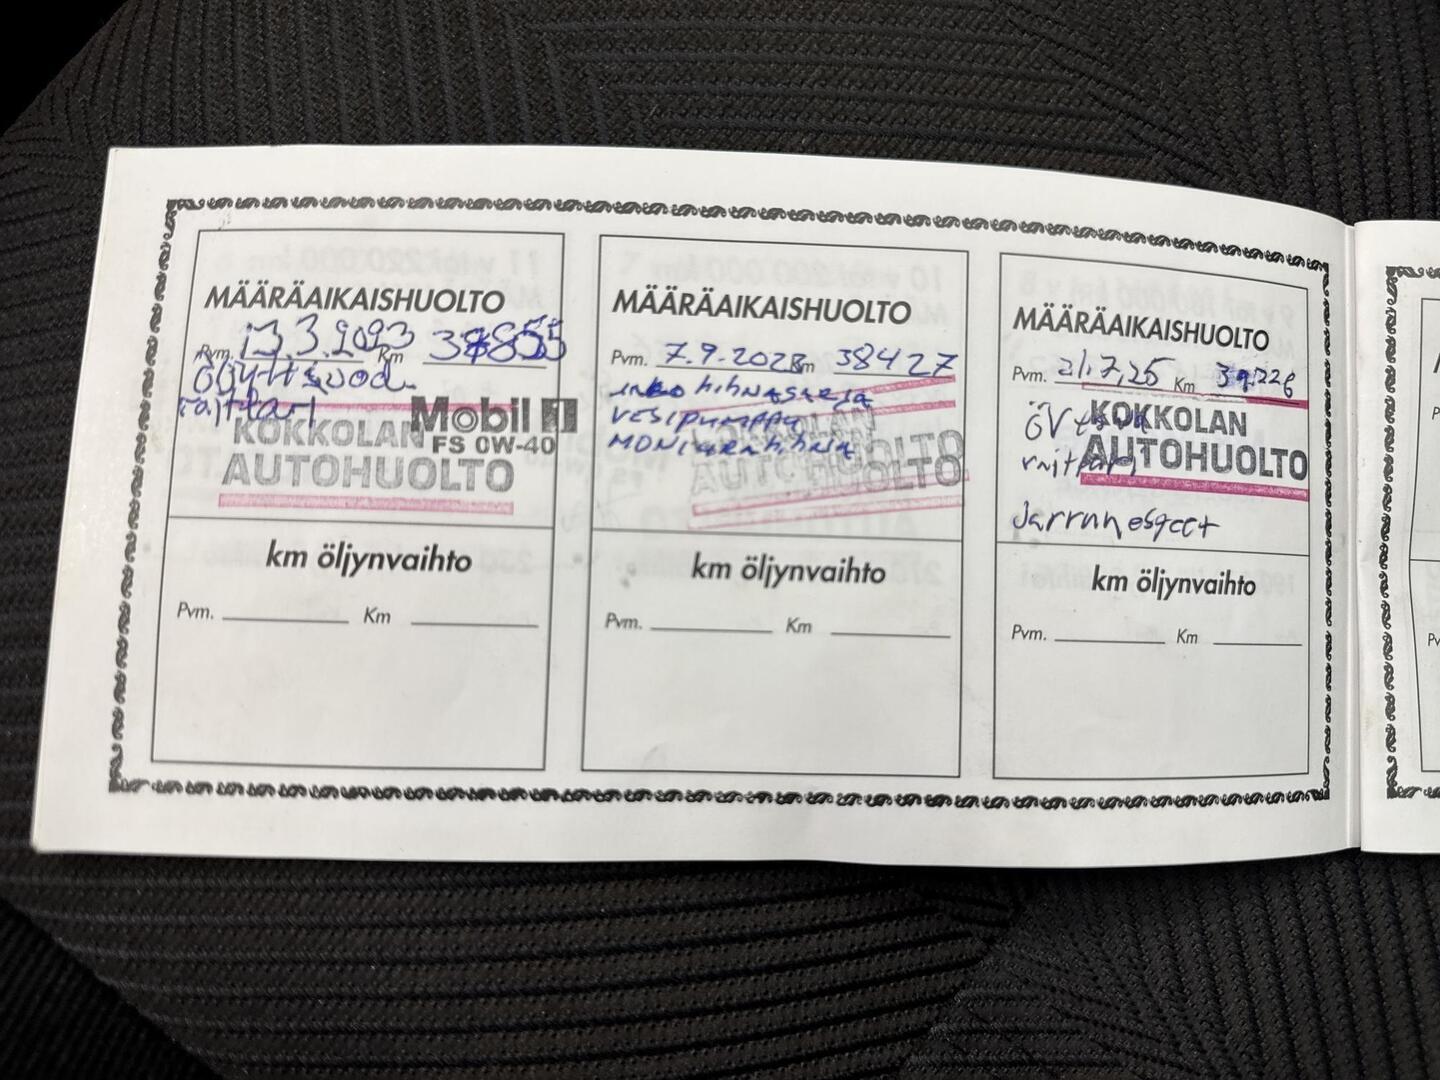 MÄÄRÄAIKAISHUOLTO
Pvm. 13.3.2023 Km
Mobil 1
FS 0W-40
KOKKOLAN
AUTOHUOLTO
km öljynvaihto
Pvm. Km
MÄÄRÄAIKAISHUOLTO
Pvm. 7.9.2023 Km 38427
VESIPUMPPU
MONIURAHIHNA
KOKKOLAN
AUTOHUOLTO
km öljynvaihto
Pvm. Km
MÄÄRÄAIKAISHUOLTO
Pvm. 21.7.25 Km 39226
KOKKOLAN
AUTOHUOLTO
Jarrunesteet
km öljynvaihto
Pvm. Km